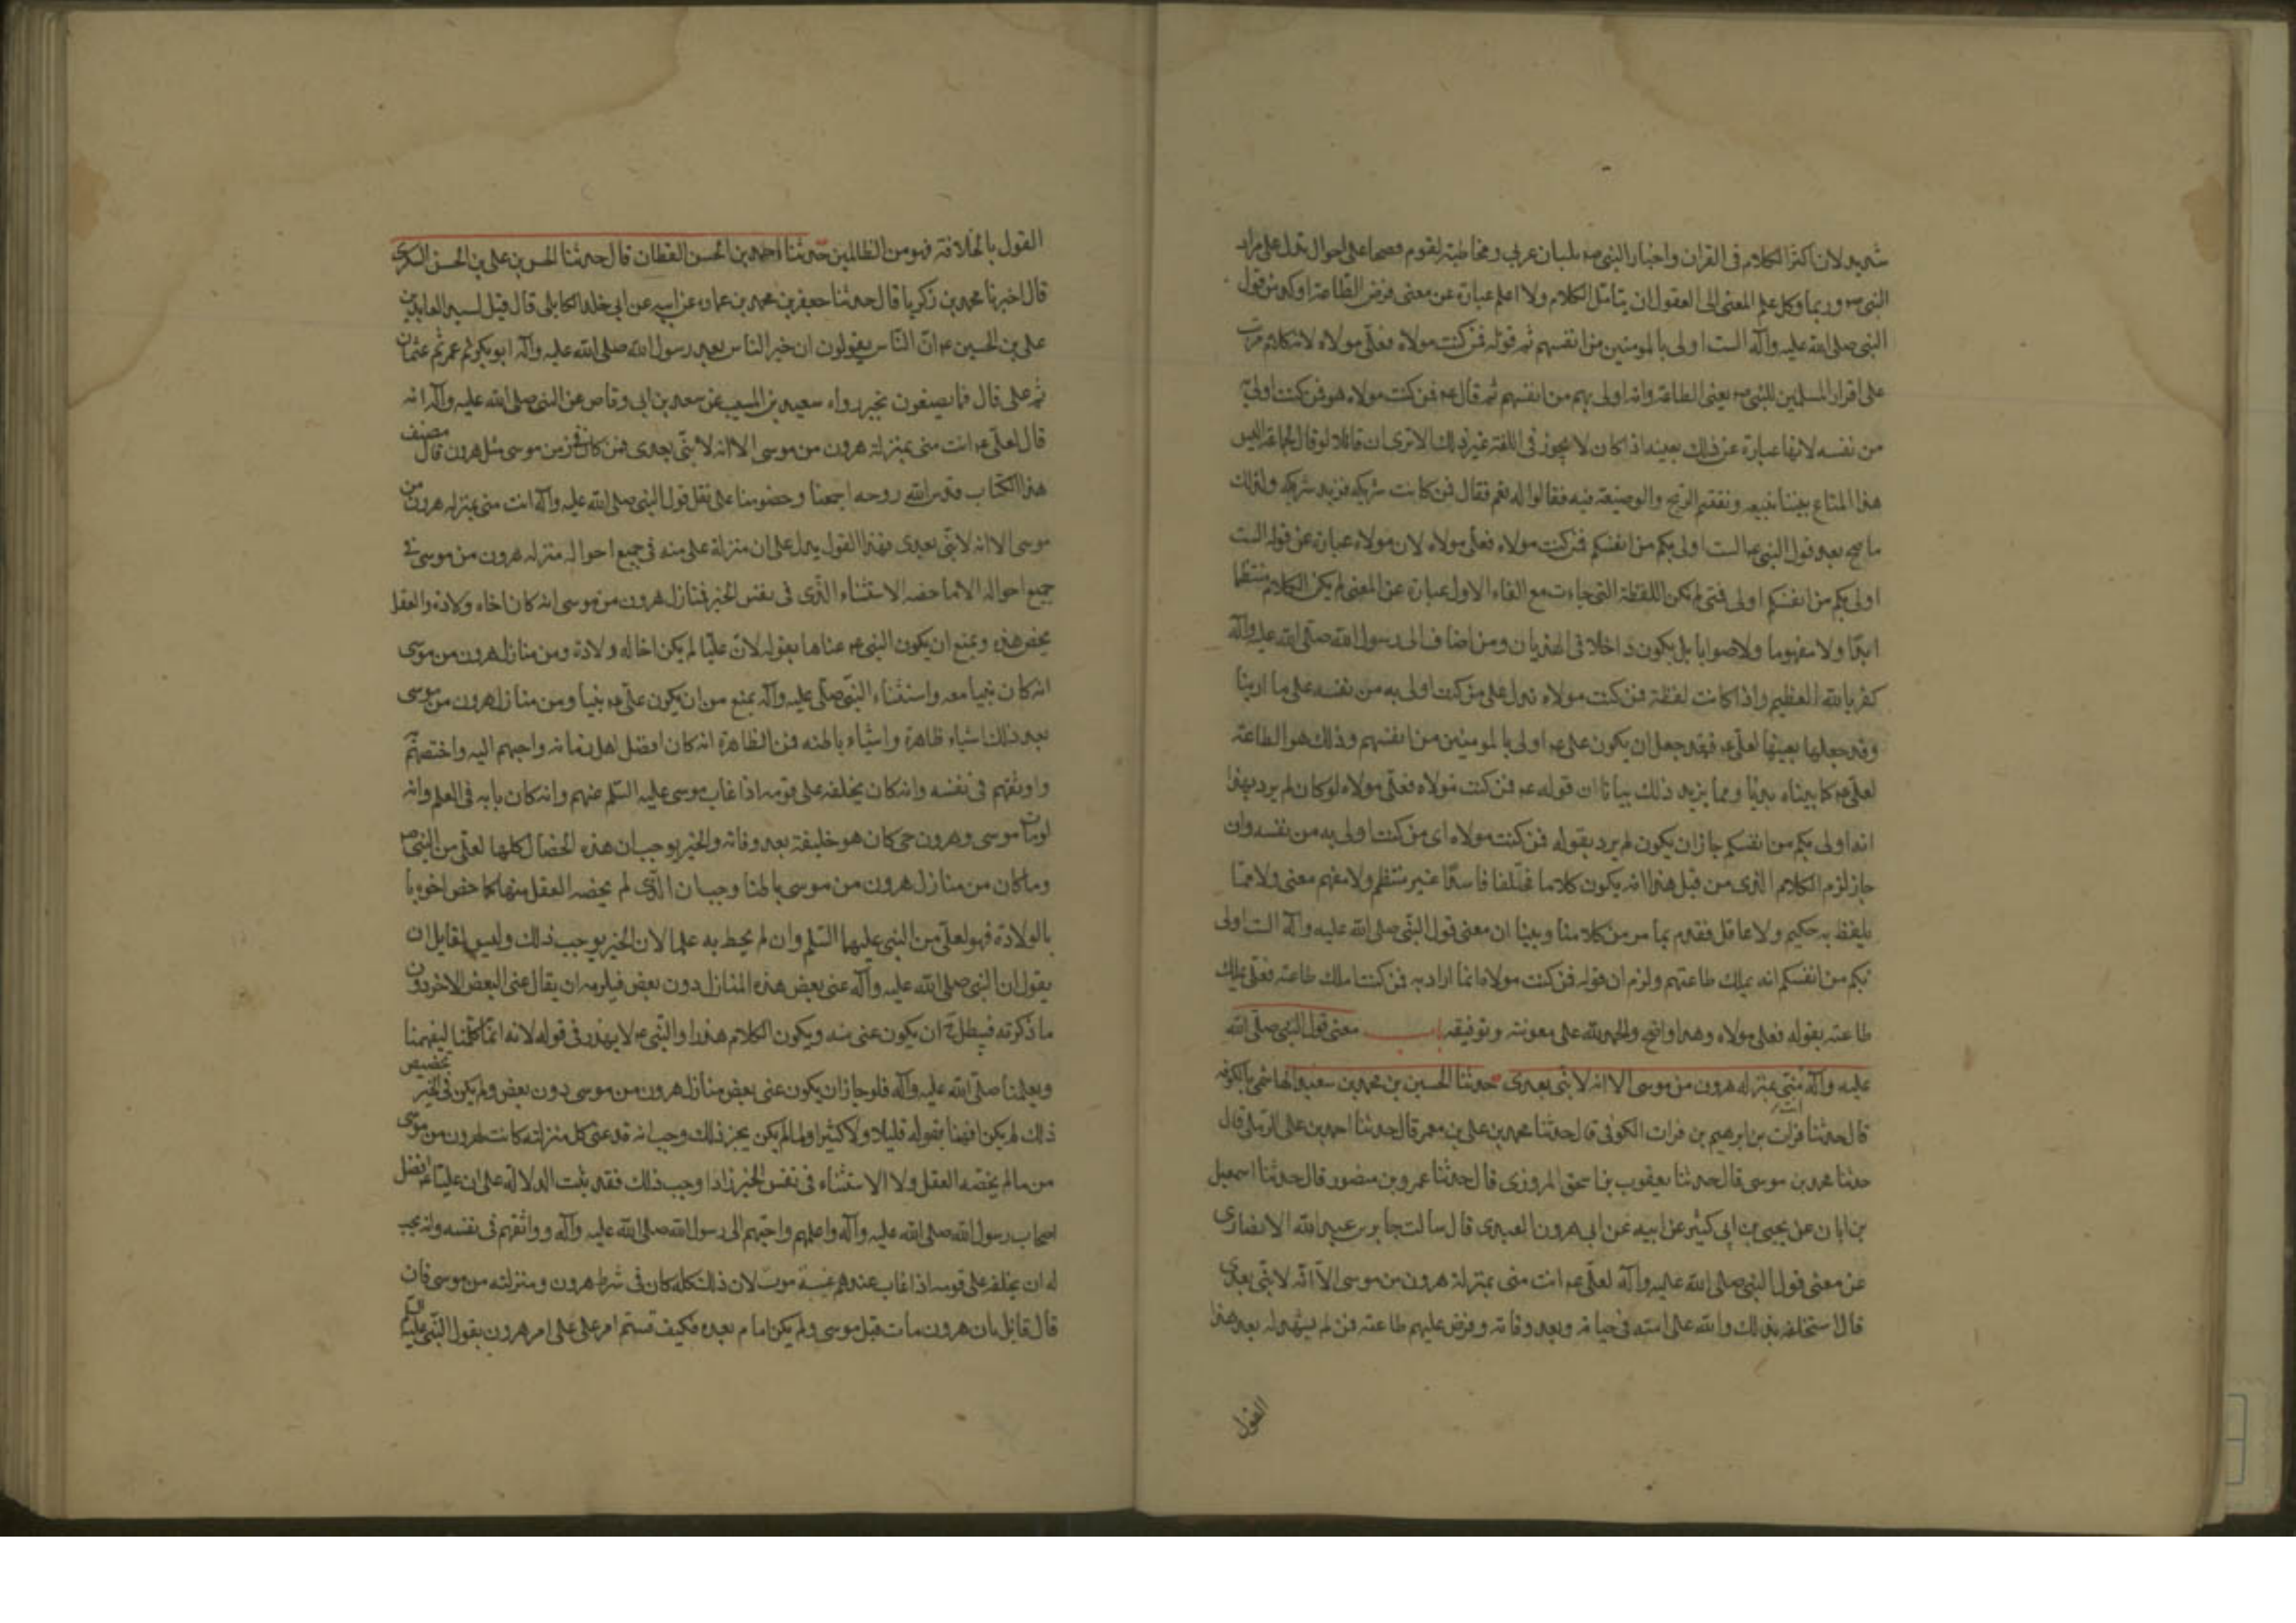 شديد لان اكثر الكلام فى القران واخبار النبى ص بلسان عربى ومخاطبة لقوم فصحا على احوال تدل على مراد
النبى ص وربما وكل علم المعنى الى العقول ان يتامل الكلام ولا اعلم عبارة عن معنى فرض الطاعة اوكد من قول
النبى صلى الله عليه واله الست اولى بالمومنين من انفسهم ثم قوله فمن كنت مولاه فعلى مولاه لانه كلام مرتب
على اقرار المسلمين للنبى ص يعنى الطاعة وانه اولى بهم من انفسهم ثم قال ع فمن كنت مولاه هو فمن كنت اولى به
من نفسه لانها عبارة عن ذلك بعينه اذا كان لا يجوز فى اللغة غير ذلك الا ترى ان قائلا لو قال لجماعة اليس
هذا المتاع بيننا نبيعه ونقتسم الربح والوضيعة فيه فقالوا له نعم فقال فمن كانت شريكه فزيد شريكه ولذلك
ما صح بعد قول النبى ع الست اولى بكم من انفسكم فمن كنت مولاه فعلى مولاه لان مولاه عبارة عن قوله الست
اولى بكم من انفسكم اولى فمتى لم يكن اللفظة التى جاءت مع الفاء الاول عبارة عن المعنى لم يكن الكلام منتظما
ابدا ولا مفهوما ولا صوابا بل يكون داخلا فى الهذيان ومن اضاف الى رسول الله صلى الله عليه واله
كفر بالله العظيم واذا كانت لفظة فمن كنت مولاه تدل على من كنت اولى به من نفسه على ما ارينا
وقد جعلها بعينها لعلى ع فقد جعل ان يكون على ع اولى بالمومنين من انفسهم وذلك هو الطاعة
لعلى ع كما بيناه بديا ومما يزيد ذلك بيانا ان قوله ع فمن كنت مولاه فعلى مولاه لو كان لم يرد بهذا
انه اولى بكم من انفسكم جاز ان يكون لم يرد بقوله فمن كنت مولاه اى من كنت اولى به من نفسه وان
جاز لزم الكلام الذى من قبل هذا انه يكون كلاما مختلفا فاسدا غير منتظم ولا مفهم معنى ولا مما
يلفظ به حكيم ولا عاقل فقد لزم بما مر من كلامنا وبينا ان معنى قول النبى صلى الله عليه واله الست اولى
بكم من انفسكم انه يملك طاعتهم ولزم ان قوله فمن كنت مولاه انما اراد به فمن كنت املك طاعته فعلى يملك
طاعته بقوله فعلى مولاه وهذا واضح والحمد لله على معونته وتوفيقه باب معنى قول النبى صلى الله
عليه واله انت منى بمنزله هرون من موسى الا انه لا نبى بعدى حدثنا الحسين بن محمد بن سعيد الهاشمى بالكوفه
قال حدثنا فرات بن ابرهيم بن فرات الكوفى قال حدثنا محمد بن على بن معمر قال حدثنا احمد بن على الرملى قال
حدثنا محمد بن موسى قال حدثنا يعقوب بن اسحق المروزى قال حدثنا عمرو بن منصور قال حدثنا اسمعيل
بن ابان عن يحيى بن ابى كثير عن ابيه عن ابى هرون العبدى قال سالت جابر بن عبد الله الانصارى
عن معنى قول النبى صلى الله عليه واله لعلى ع انت منى بمنزلة هرون من موسى الا انه لا نبى بعدى
قال استخلفه بذلك والله على امته فى حياته وبعد وفاته وفرض عليهم طاعته فمن لم يشهد له بعد هذا
القول
القول بالخلافة فهو من الظالمين حدثنا احمد بن الحسن القطان قال حدثنا الحسن بن على بن الحسن السكرى
قال اخبرنا محمد بن زكريا قال حدثنا جعفر بن محمد بن عماره عن ابيه عن ابى خلد الكابلى قال قيل لسيد العابدين
على بن الحسين ع ان الناس يقولون ان خير الناس بعد رسول الله صلى الله عليه واله ابو بكر ثم عمر ثم عثمان
ثم على قال فما يصنعون بخبر رواه سعيد بن المسيب عن سعد بن ابى وقاص عن النبى صلى الله عليه واله انه
قال لعلى ع انت منى بمنزلة هرون من موسى الا انه لا نبى بعدى فمن كان فى زمن موسى مثل هرون قال مصنف
هذا الكتاب قدس الله روحه اجمعنا وخصومنا على نقل قول النبى صلى الله عليه واله انت منى بمنزله هرون من
موسى الا انه لا نبى بعدى فهذا القول يدل على ان منزلة على منه فى جميع احواله منزله هرون من موسى فى
جميع احواله الا ما خصه الاستثناء الذى فى نفس الخبر فمنازل هرون من موسى انه كان اخاه ولادة والعقل
يخص هذه ويمنع ان يكون النبى ع عناها بقوله لان عليا لم يكن اخا له ولادة ومن منازل هرون من موسى
انه كان نبيا معه واستثناء النبى صلى عليه واله يمنع من ان يكون على ع نبيا ومن منازل هرون من موسى
بعد ذلك اشياء ظاهرة واشياء باطنه فمن الظاهرة انه كان افضل اهل زمانه واحبهم اليه واخصهم
واوثقهم فى نفسه وانه كان يخلفه على قومه اذا غاب موسى عليه السلم عنهم وانه كان بابه فى العلم وانه
لو مات موسى وهرون حى كان هو خليفة بعد وفاته والخبر يوجب ان هذه الخصال كلها لعلى من النبى ص
وما كان من منازل هرون من موسى باطنا وجب ان الذى لم يخصه العقل منها كما خص اخوة با
بالولادة فهو لعلى من النبى عليهما السلم وان لم يحط به علما لان الخبر يوجب ذلك وليس لقايل ان
يقول ان النبى صلى الله عليه واله عنى بعض هذه المنازل دون بعض فيلزمه ان يقال عنى البعض الاخر دون
ما ذكرته فيبطل ح ان يكون عنى منه ويكون الكلام هذرا والنبى ع لا يهذر فى قوله لانه انما كلمنا ليفهمنا
ويعلمنا صلى الله عليه واله فلو جاز ان يكون عنى بعض منازل هرون من موسى دون بعض ولم يكن فى الخبر تخصيص
ذلك لم يكن افهمنا بقوله قليلا ولا كثيرا ولما لم يكن يجز ذلك وجب انه قد عنى كل منزلته كانت لهرون من موسى
من ما لم يخصه العقل ولا الاستثناء فى نفس الخبر واذا وجب ذلك فقد ثبت الدلالة على ان عليا ع افضل
اصحاب رسول الله صلى الله عليه واله واعلمهم واحبهم الى رسول الله صلى الله عليه واله وواثقهم فى نفسه وانه يجب
له ان يخلفه على قومه اذا غاب عنهم غيبة موت لان ذلك كله كان فى شرط هرون ومنزلته من موسى فان
قال قايل بان هرون مات قبل موسى ولم يكن امام بعده فكيف قستم امر على على امر هرون بقول النبى عليه السلم